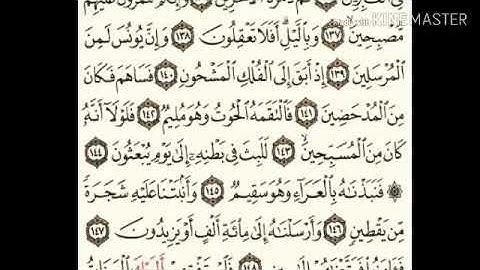 Made with KINEMASTER
مُّصْبِحِينَ ١٣٧ وَبِالَّيْلِ ۗ أَفَلَا تَعْقِلُونَ ١٣٨ وَإِنَّ يُونُسَ لَمِنَ
الْمُرْسَلِينَ ١٣٩ إِذْ أَبَقَ إِلَى الْفُلْكِ الْمَشْحُونِ ١٤٠ فَسَاهَمَ فَكَانَ
مِنَ الْمُدْحَضِينَ ١٤١ فَالْتَقَمَهُ الْحُوتُ وَهُوَ مُلِيمٌ ١٤٢ فَلَوْلَا أَنَّهُ
كَانَ مِنَ الْمُسَبِّحِينَ ١٤٣ لَلَبِثَ فِي بَطْنِهِ إِلَى يَوْمِ يُبْعَثُونَ ١٤٤
۞ فَنَبَذْنَاهُ بِالْعَرَاءِ وَهُوَ سَقِيمٌ ١٤٥ وَأَنْبَتْنَا عَلَيْهِ شَجَرَةً
مِّن يَقْطِينٍ ١٤٦ وَأَرْسَلْنَاهُ إِلَى مِائَةِ أَلْفٍ أَوْ يَزِيدُونَ ١٤٧